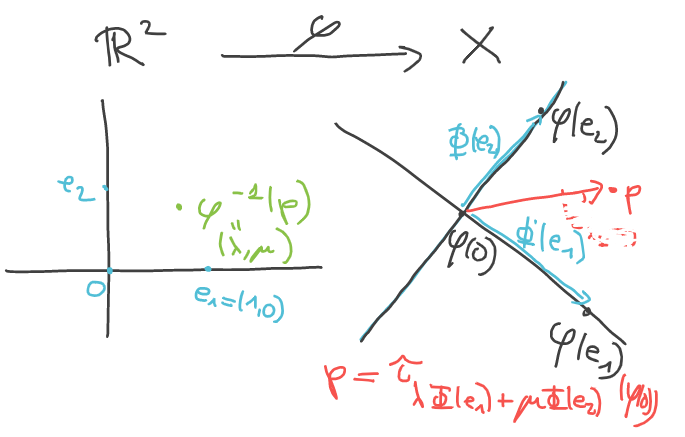 ℝ² φ X
e₂
φ⁻¹(p)
"
(λ,μ)
0
e₁=(1,0)
φ(e₂)
Φ(e₂)
p
φ(0)
Φ(e₁)
φ(e₁)
p = τ_{λΦ(e₁)+μΦ(e₂)} (φ(0))